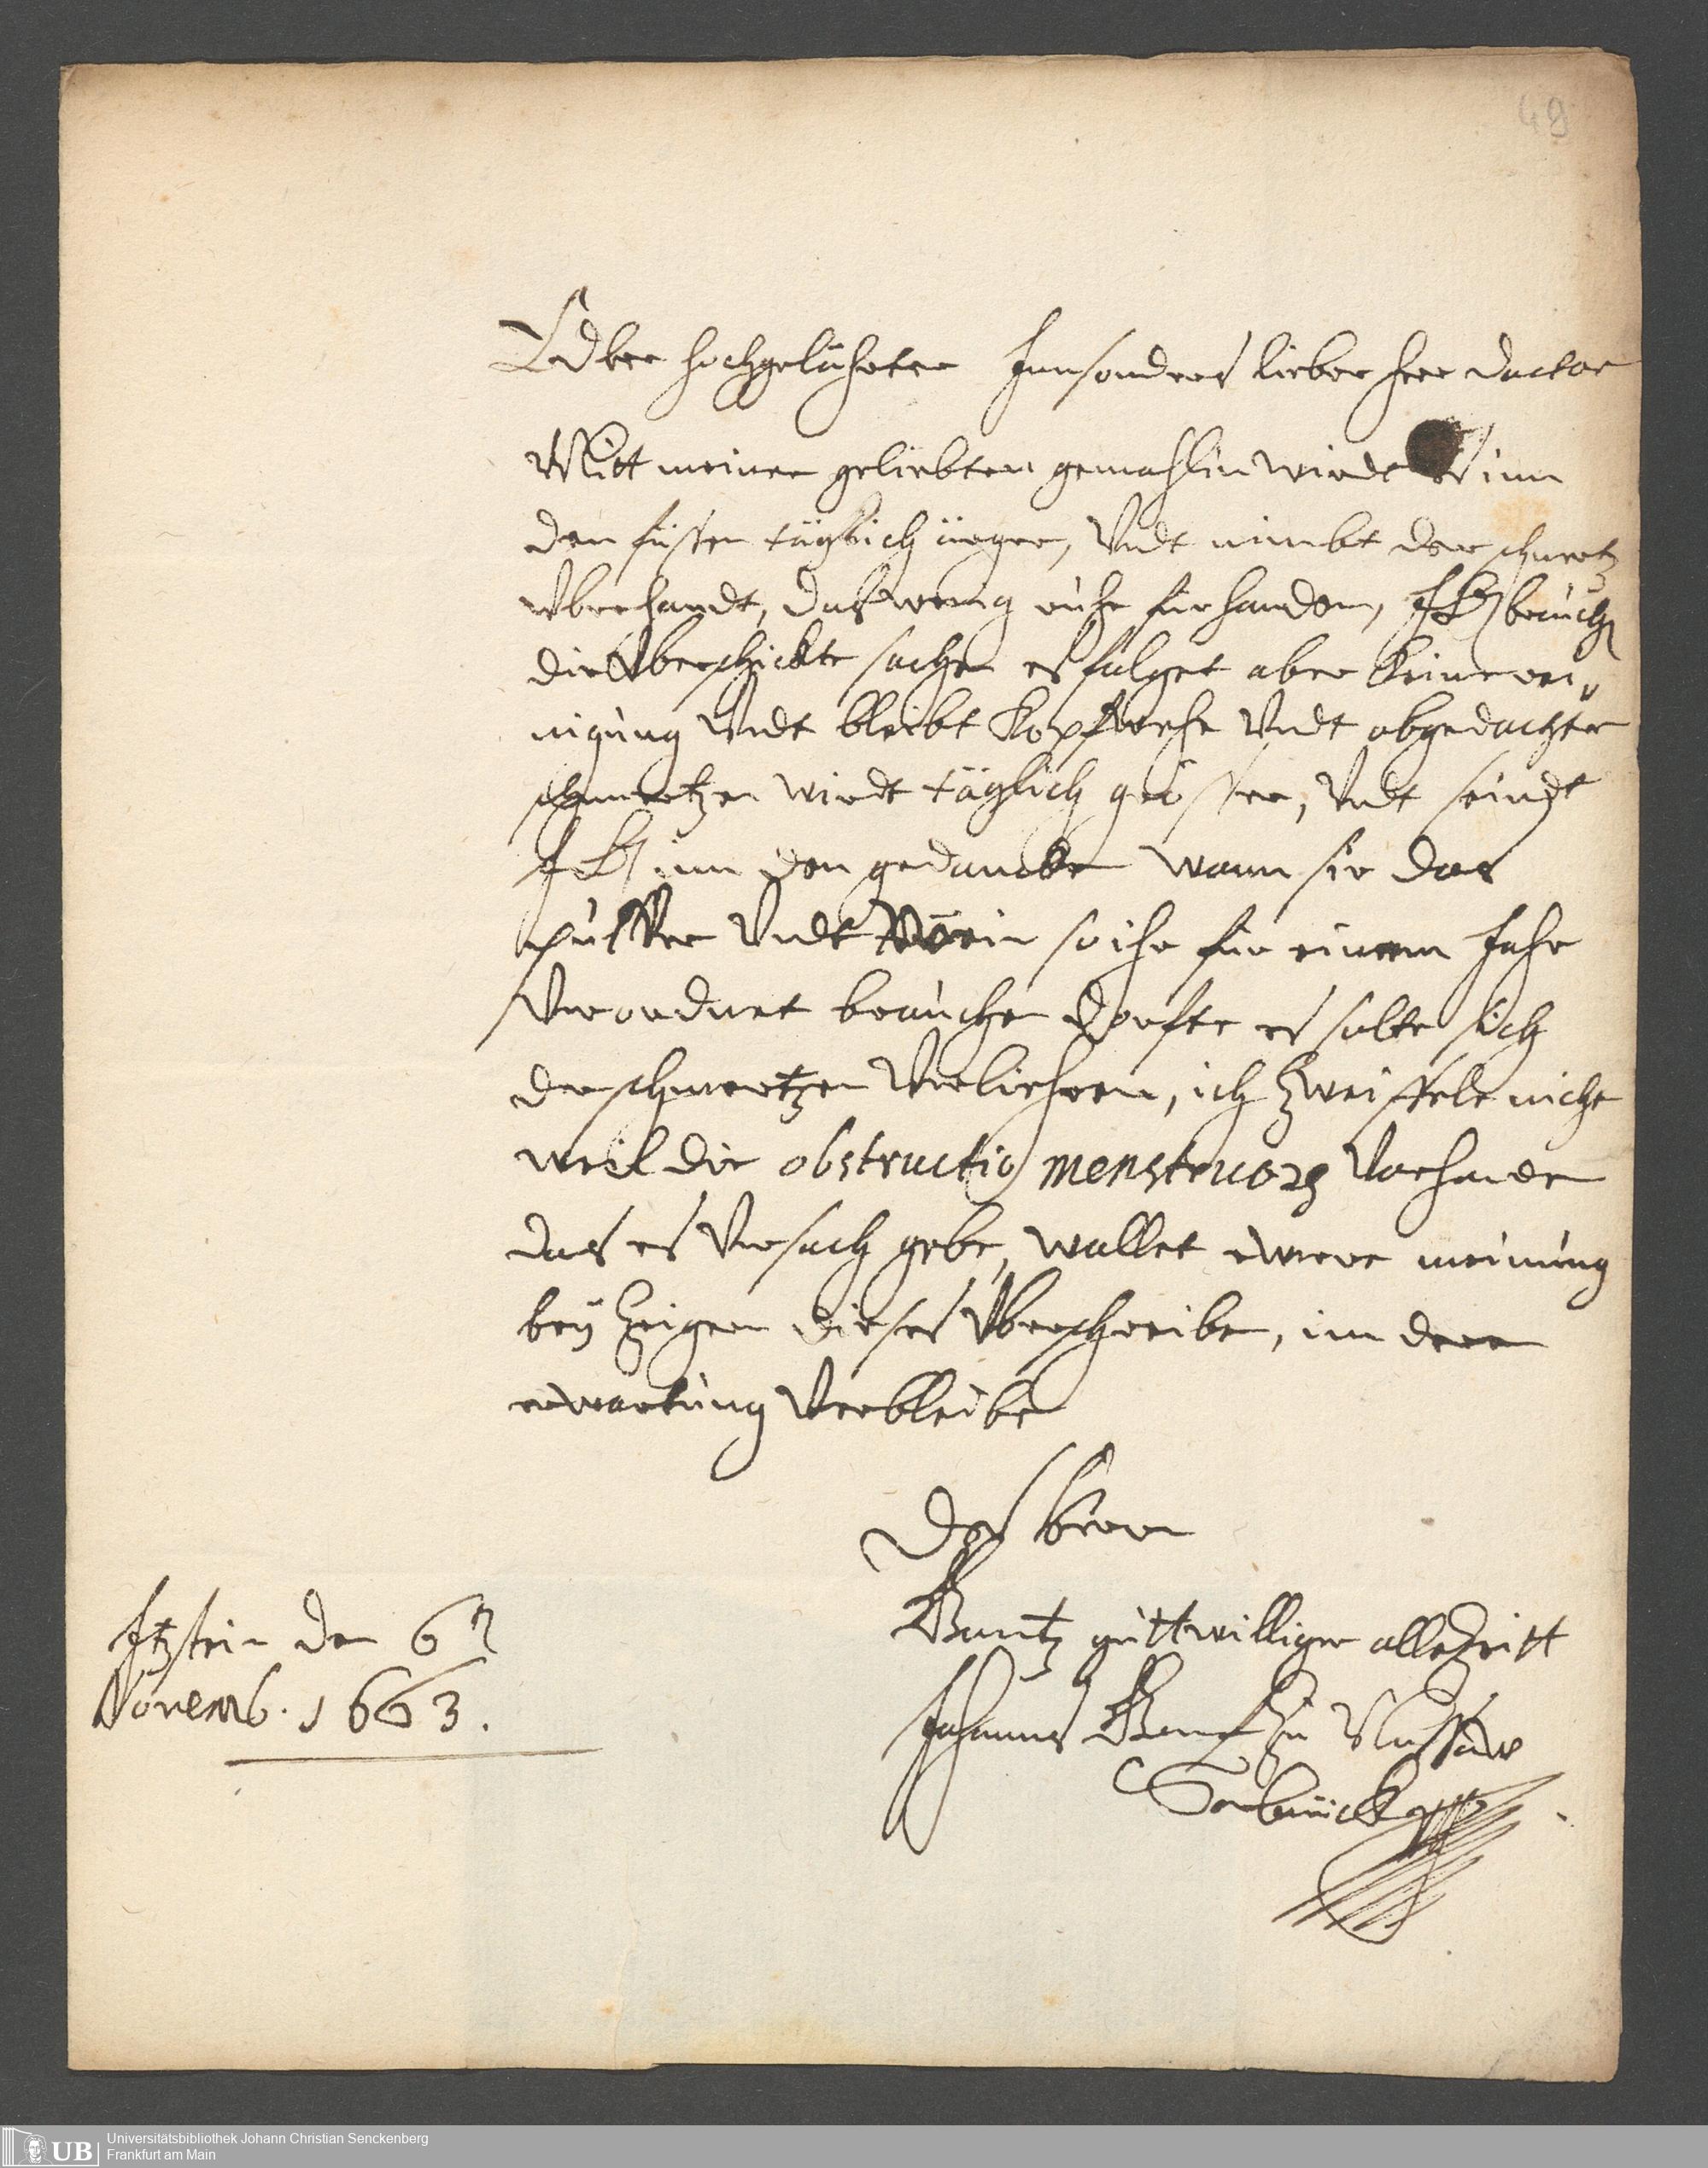 49
Edler hochgelährter Innsonders lieber herr doctor
Mitt meiner geliebten gemahlin wirdt es inn
den füßen täglich ärger, Undt nimbt der schmertz
Uberhandt, das wenig ruhe fürhanden, I L brauch
die Uberschickte sachen es folget aber keine rei„
nigung Undt bleibt kopfwehe Undt obgedachter
schmertzen wirdt täglich grösser, Undt seindt
I L inn den gedancken wann sie das
pulffer Undt so ihr für einem Jahr
Verordnet brauchen dörfte es solte sich
der schmertzen Verliehren, ich Zweiffele nicht
weil die obstructio menstruorũ Vorhanden
das es Ursach gebe, wollet ewere meinung
beÿ Zeigern dieses Uberschreiben, in deren
erwartung Verbleibe
Des herrn
Gantz guttwilliger allezeitt
Johannes Graf Zu Nassaw
Sarbrück
Itzstein den 6t
Novemb. 1663.
UB Universitätsbibliothek Johann Christian Senckenberg
Frankfurt am Main